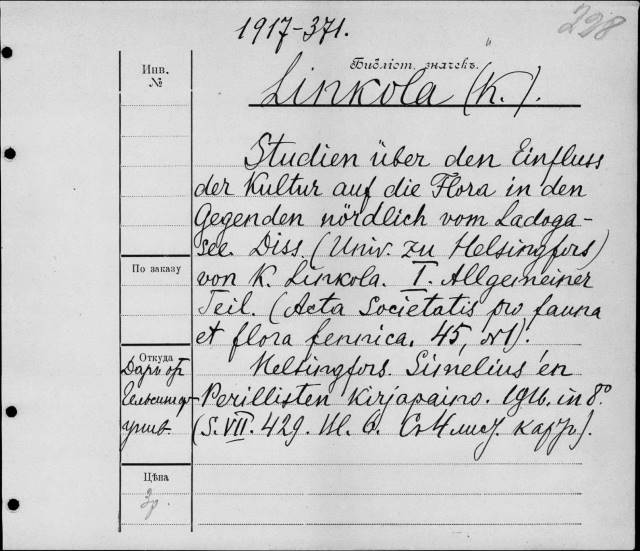 298
1917-371.
Библіот. значекъ.
Инв.
№
Linkola (K.).
Studien über den Einfluss
der Kultur auf die Flora in den
Gegenden nördlich vom Ladoga-
see. Diss. (Univ. zu Helsingfors)
По заказу
von K. Linkola. I. Allgemeiner
Teil. (Acta Societatis pro fauna
et flora fennica. 45, №1).
Откуда
Helsingfors. Simelius'en
Даръ от
Perillisten Kirjapaino. 1916. in 8º
Гельсингф.
(S. VII. 429. Ill. 6. Съ 4 лист. карт.).
унив.
Цѣна